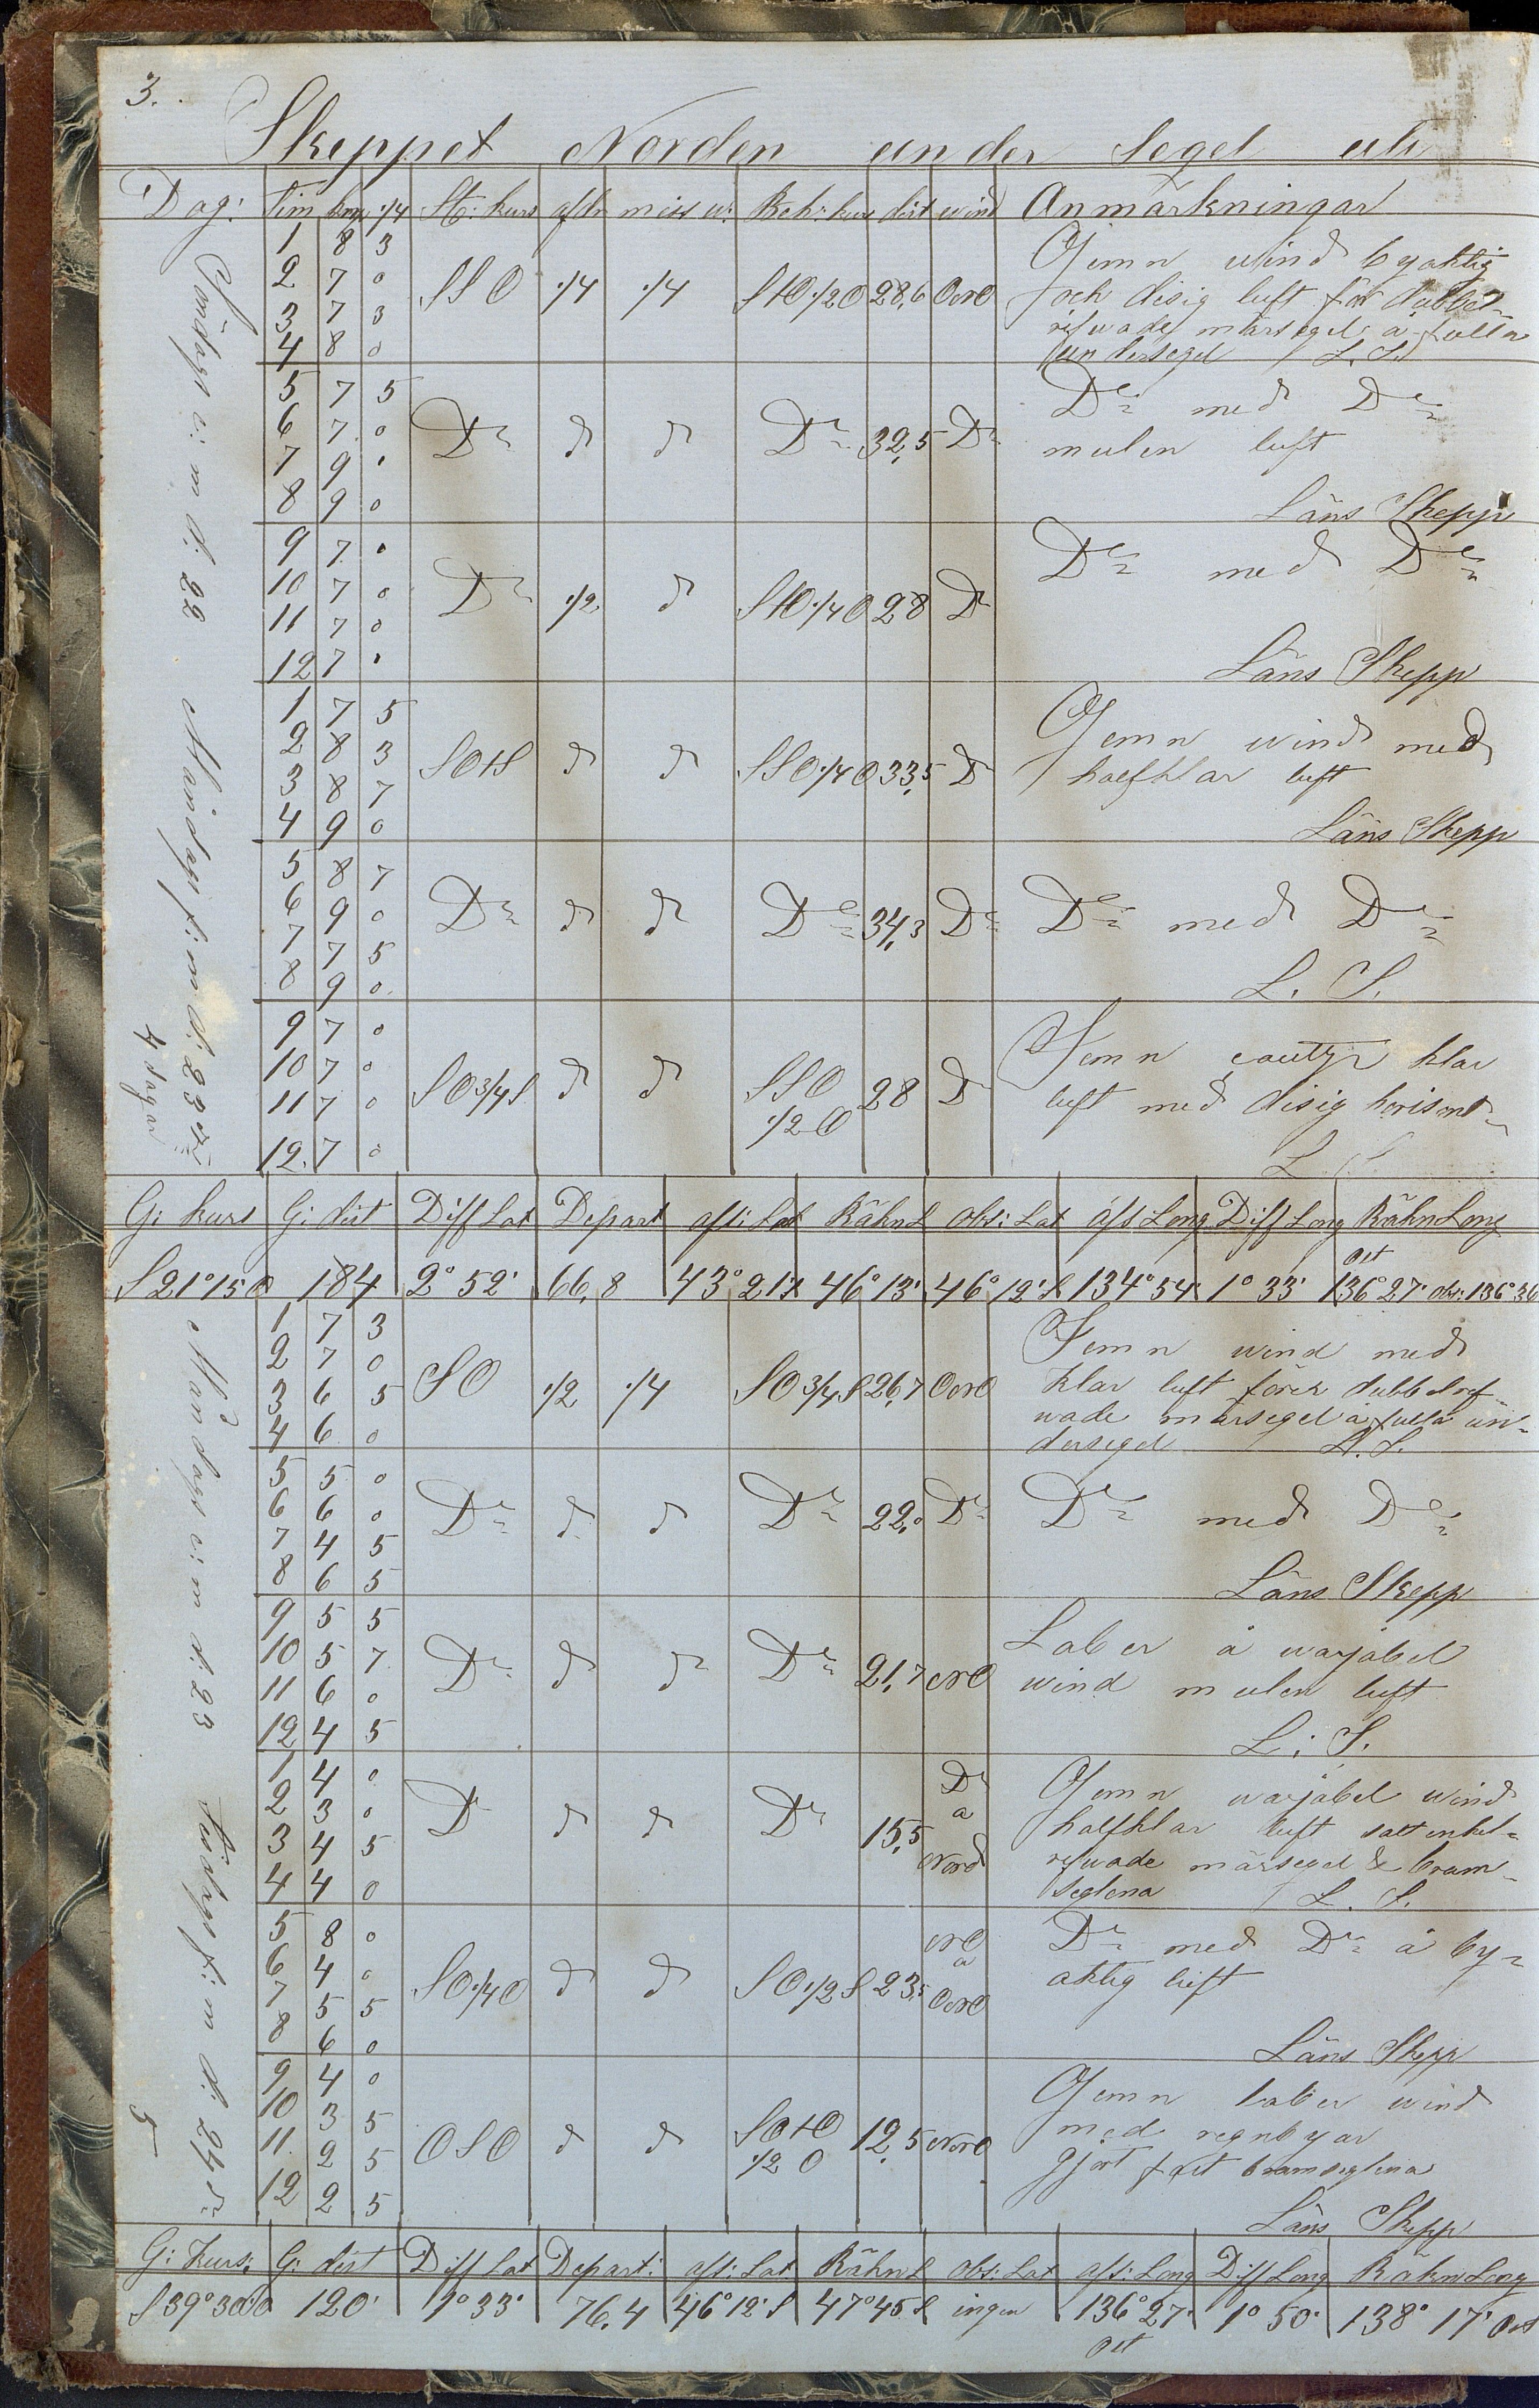 3.
Skeppet Norden under Segel uti
Dag: Tim kn 1/4 St: kurs afdr missv: Beh: kurs dist wind Anmärkningar
Söndags e: m d: 22 Måndags f: m d: 23de
4 dagar
1 8 3
2 7 0
3 7 3
4 8 0
SSO 1/4 1/4 StO 1/2 O 28,6 ONO
Jemn wind byaktig
och disig luft för dubbel-
refwade märsegel å fulla
undersegel L. S.
5 7 5
6 7 0
7 9 0
8 9 0
Do d d Do 32,5 Do
De med De
mulen luft
Läns Skepp
9 7 0
10 7 0
11 7 0
12 7 0
Do 1/2 d StO 1/4 O 28 D
De med De
Läns Skepp
1 7 5
2 8 3
3 8 7
4 9 0
SOtS d d SSO 1/4 O 33,5 D
Jemn wind med
halfklar luft
Läns Skepp
5 8 7
6 9 0
7 7 5
8 9 0
Do d d De 34,3 Do
De med De
L. S.
9 7 0
10 7 0
11 7 0
12. 7 0
SO 3/4 S d d SSO 1/2 O 28 D
Jemn klar
luft med disig horisont
L
G: kurs G: dist Diff Lat Depart aff: Lat Räkn L obs: Lat aff: Long Diff Long Räkn Long
S 21° 15 O 184 2° 52' 66,8 43° 21' 46° 13' 46° 12' S 134° 54' 1° 33' Ost 136° 27' obs: 136° 36
Måndags e: m d: 23 Tisdags f: m d: 24de
5
1 7 3
2 7 0
3 6 5
4 6 0
SO 1/2 1/4 SO 3/4 S 26,7 ONO
Jemn wind med
klar luft förer dubbelref-
wade märsegel å fulla un-
dersegel L. S.
5 5 0
6 6 0
7 4 5
8 6 5
Do d d Do 22,0 Do
De med De
Läns Skepp
9 5 5
10 5 7
11 6 0
12 4 5
Do d d De 21,7 NO
Laber å warjabel
wind mulen luft
L: S.
1 4 0
2 3 0
3 4 5
4 4 0
D d d Do 15,5 Do a Nord
Jemn warjabel wind
halfklar luft satt enkel-
refwade märsegel & bram-
seglena L. S.
5 8 0
6 4 0
7 5 5
8 6 0
SO 1/4 O d d SO 1/2 S 23,5 NO a ONO
De med De å by-
aktig luft
Läns Skepp
9 4 0
10 3 5
11. 2 5
12 2 5
OSO d d SOtO 1/2 O 12,5 NNO
Jemn laber wind
med regnbyar
gjort fast bramseglena
Läns Skepp
G: kurs: G: dist Diff Lat Depart: aff: Lat Räkn L obs: Lat aff: Long Diff Long Räkn Long
S 39° 30 O 120' 1° 33' 76,4 46° 12' S 47° 45 S ingen 136° 27' Ost 1° 50' 138° 17' Ost